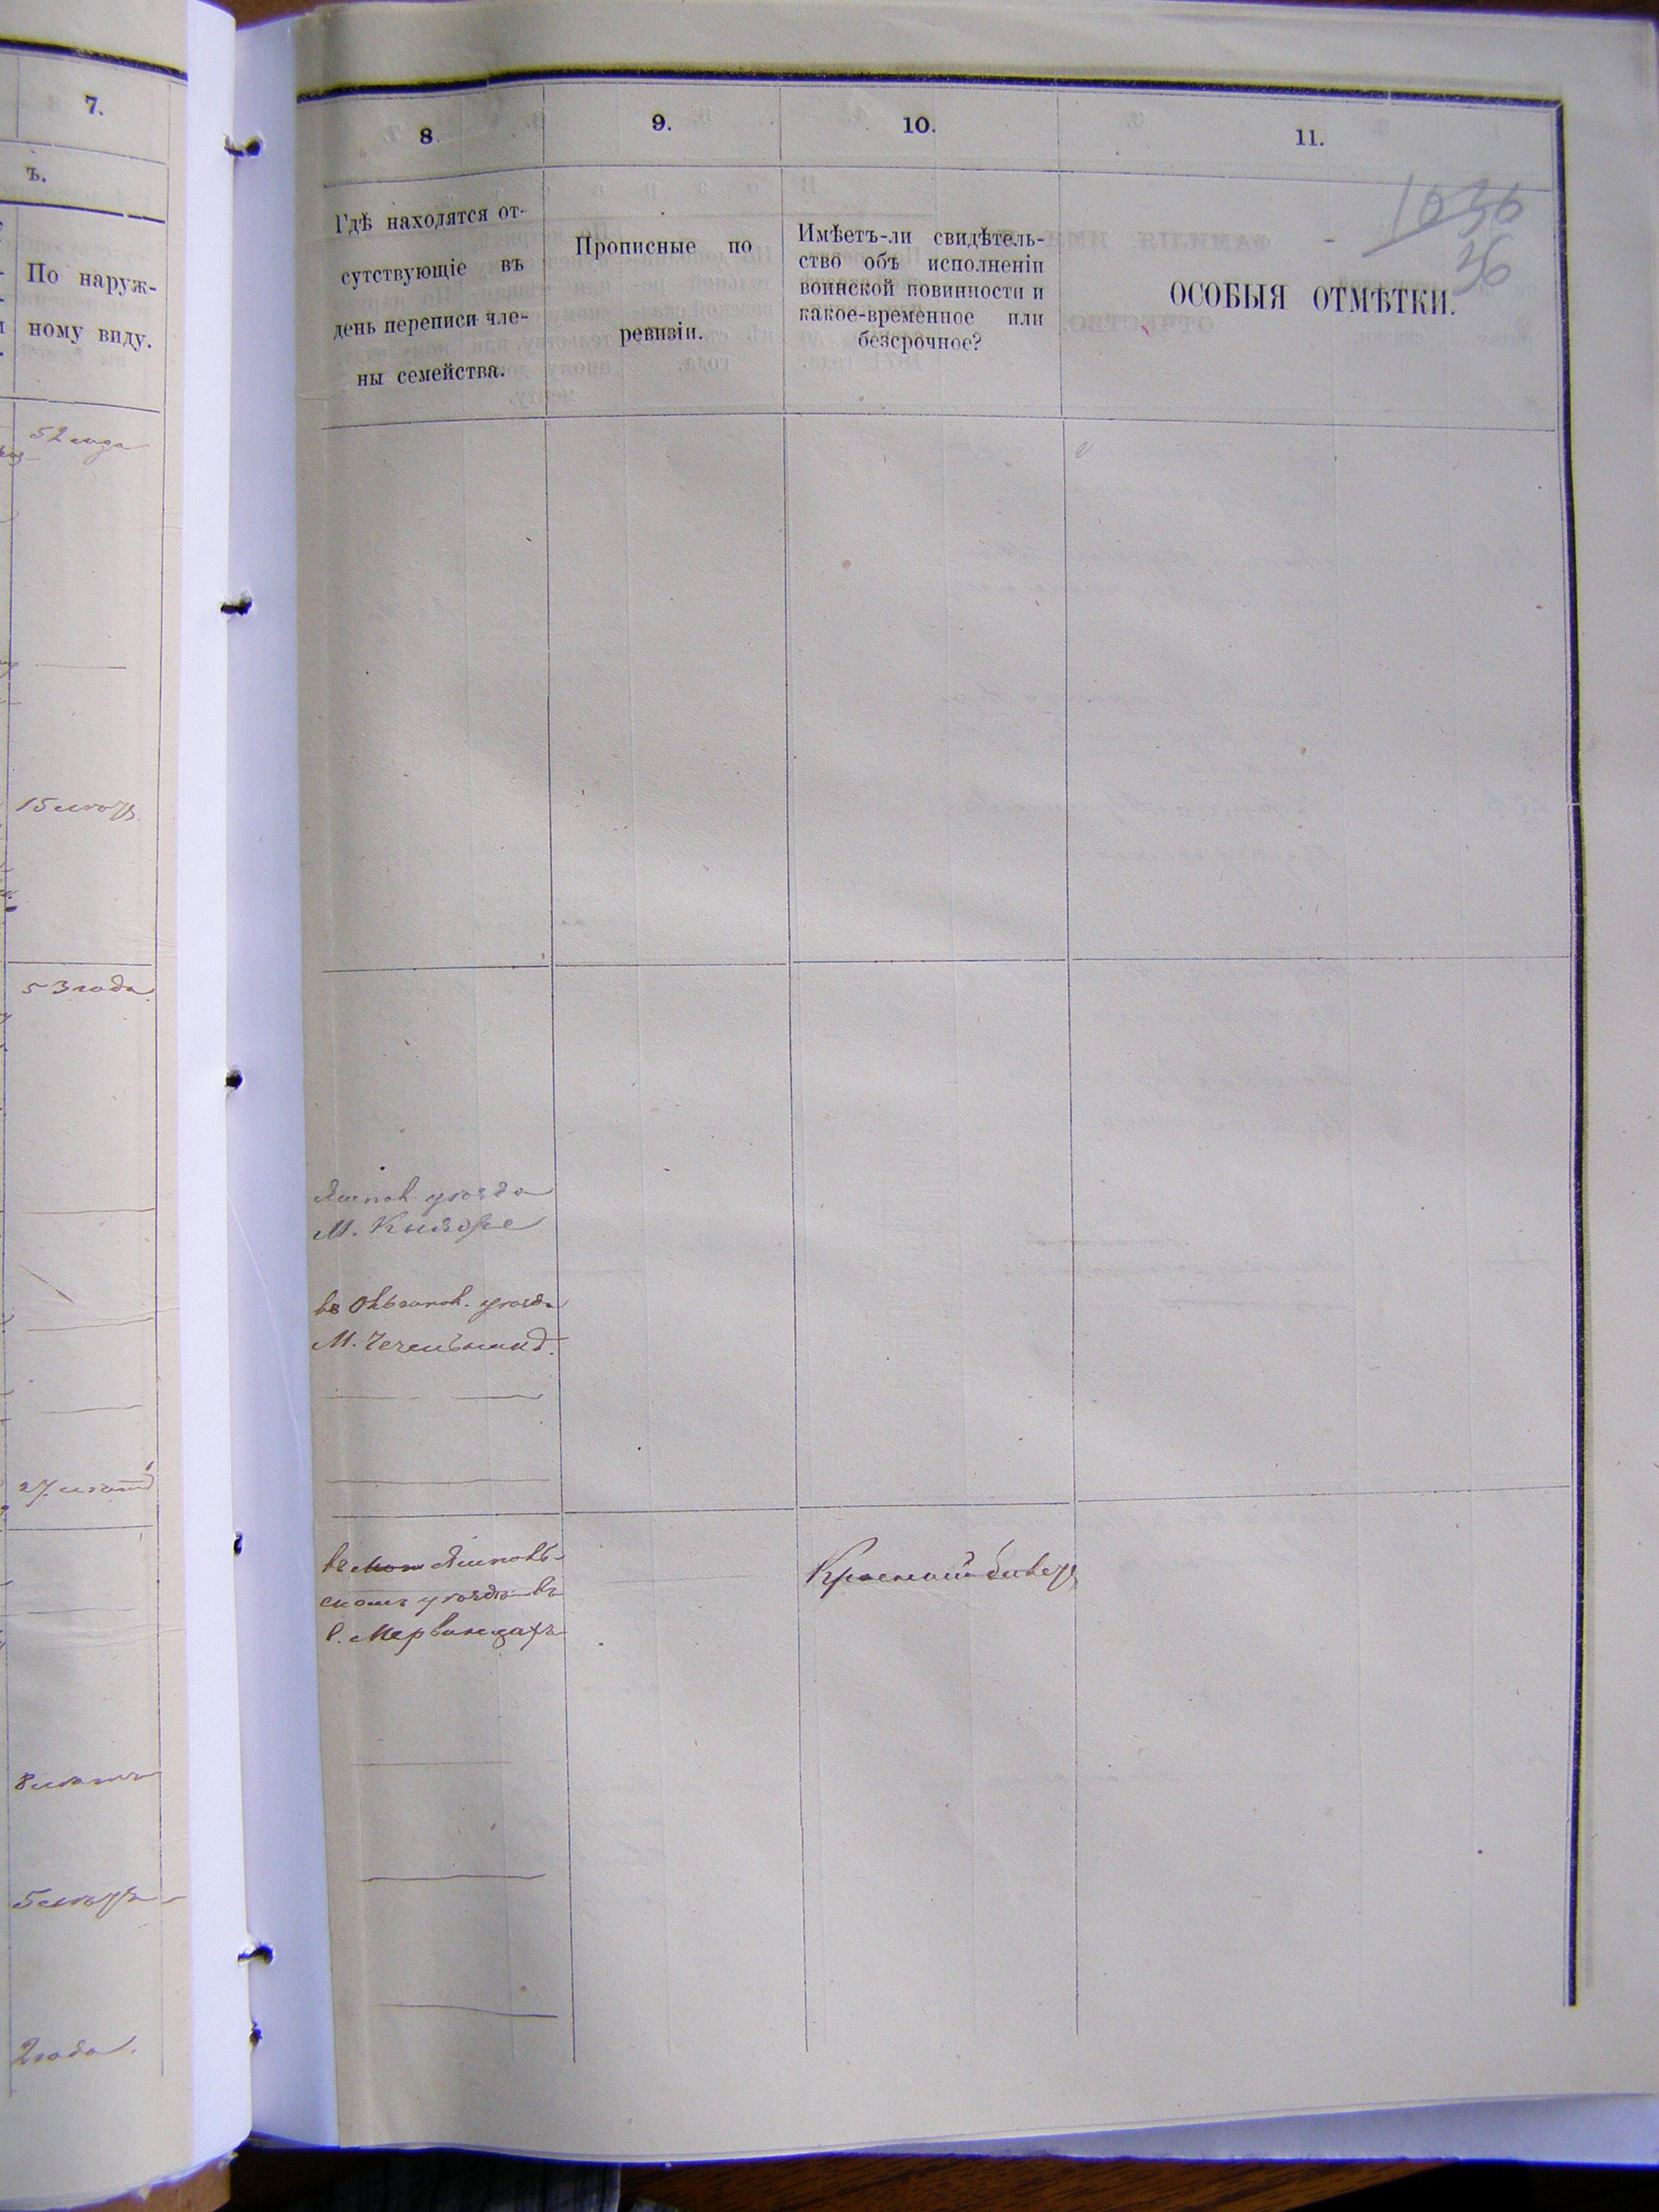 7.
ъ.
По наруж-
ному виду.
52 года
15 летъ
53 года
27 летъ
8 летъ
5 летъ
2 года.
8.
9.
10.
11.
Гдѣ находятся от-
сутствующіе въ
день переписи чле-
ны семейства.
Прописные по
ревизіи.
Имѣетъ-ли свидѣтель-
ство объ исполненіи
воинской повинности и
какое-временное или
безсрочное?
ОСОБЫЯ ОТМѢТКИ.
1036
36
Ямпол. уезда
М.
въ уезда
М.
въ Ямполь-
скомъ уезде въ
с.
Красный билетъ